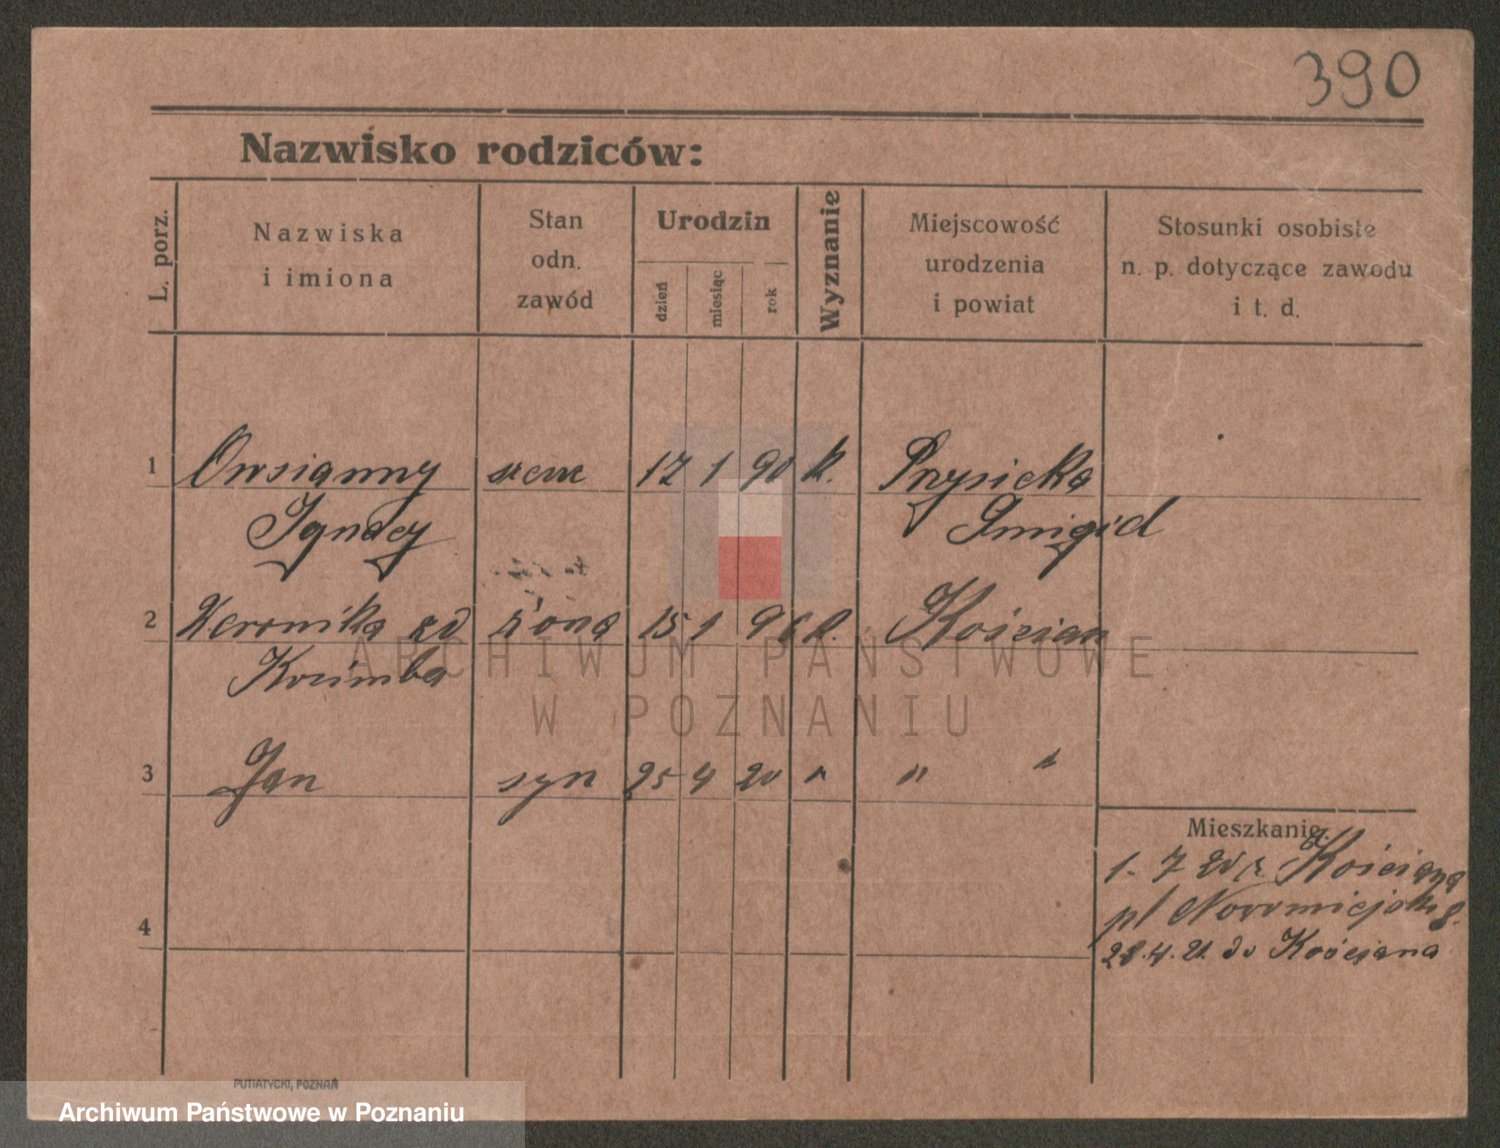 390
Nazwisko rodziców:
L. porz.
Nazwiska
i imiona
Stan
odn.
zawód
Urodzin
dzień
miesiąc
rok
Wyznanie
Miejscowość
urodzenia
i powiat
Stosunki osobiste
n. p. dotyczące zawodu
i t. d.
1 Owsianny 17 1 90 k. Przysieka
Ignacy Śmigiel
2 Weronika żona 15 1 96 k. Kościan
3 Jan syn 25 4 20 " " "
Mieszkanie.
1. 7 20 z Kościana
pl Nowomiejski 8.
28.4.21 do Kościana
4
ARCHIWUM PAŃSTWOWE
W POZNANIU
PUTIATYCKI, POZNAŃ
Archiwum Państwowe w Poznaniu